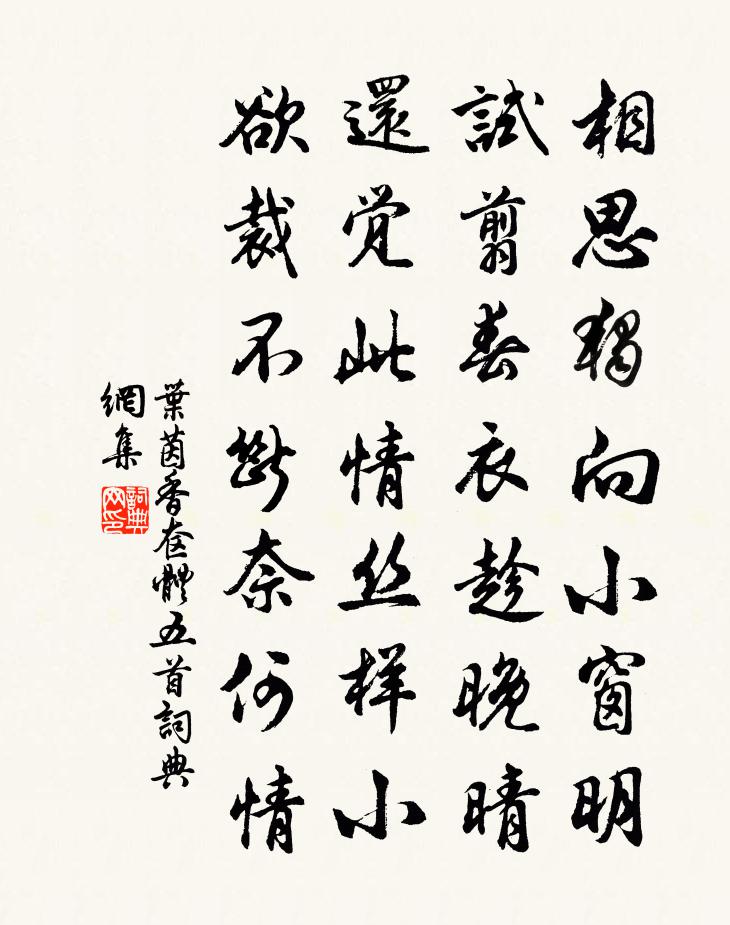 相思独向小窗明
試翦春衣趁晚晴
還覚此情丝样小
欲裁不断奈何情
葉茵香奁體五首詞典
網集
詞典
网印